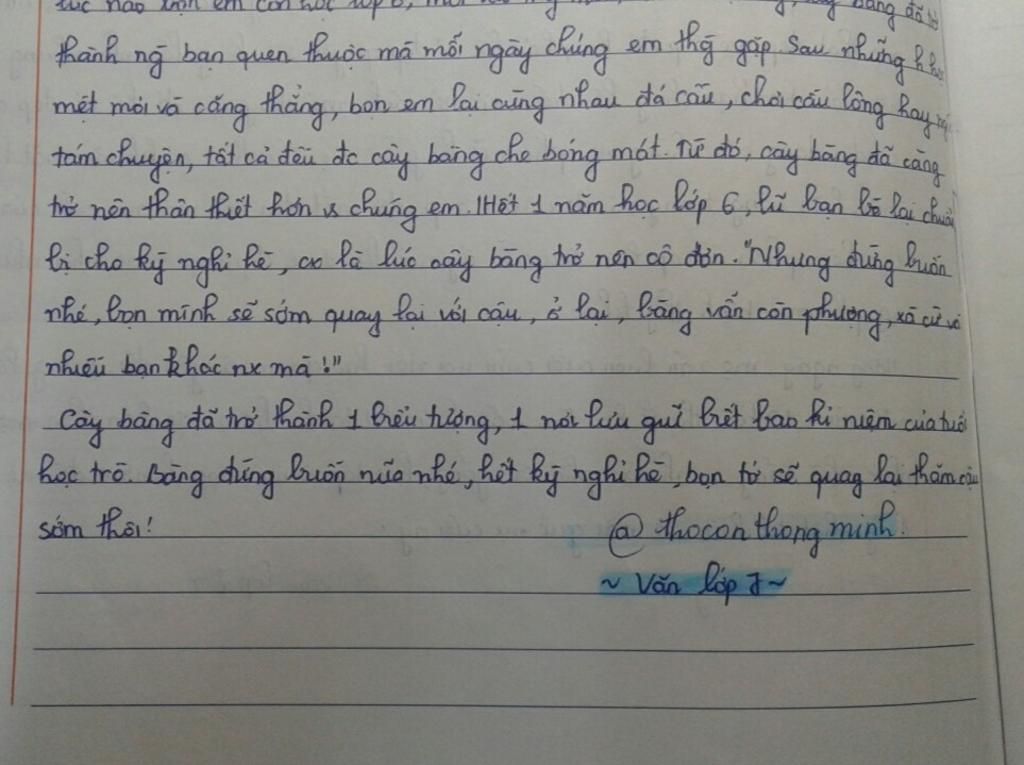 lúc nào em còn học lớp 6, cây bàng đã trở
thành ng̃ bạn quen thuộc mà mỗi ngày chúng em thg̃ gặp. Sau những h học
mệt mỏi và căng thẳng, bọn em lại cùng nhau đá cầu, chơi cầu lông hay
tám chuyện, tất cả đều đc cây bàng che bóng mát. Từ đó, cây bàng đã càng
trở nên thân thiết hơn vs chúng em. Hết 1 năm học lớp 6, lũ bạn bè lại chuẩn
bị cho kỳ nghỉ hè, cx là lúc cây bàng trở nên cô đơn. "Nhưng đừng buồn
nhé, bọn mình sẽ sớm quay lại với cậu, ở lại, bàng vẫn còn phượng, xà cừ và
nhiều bạn khác nx mà!"
Cây bàng đã trở thành 1 biểu tượng, 1 nơi lưu giữ biết bao kỉ niệm của tuổi
học trò. Bàng đừng buồn nữa nhé, hết kỳ nghỉ hè, bọn tớ sẽ quay lại thăm cậu
sớm thôi!
@ thocon thong minh.
~ Văn lớp 7 ~